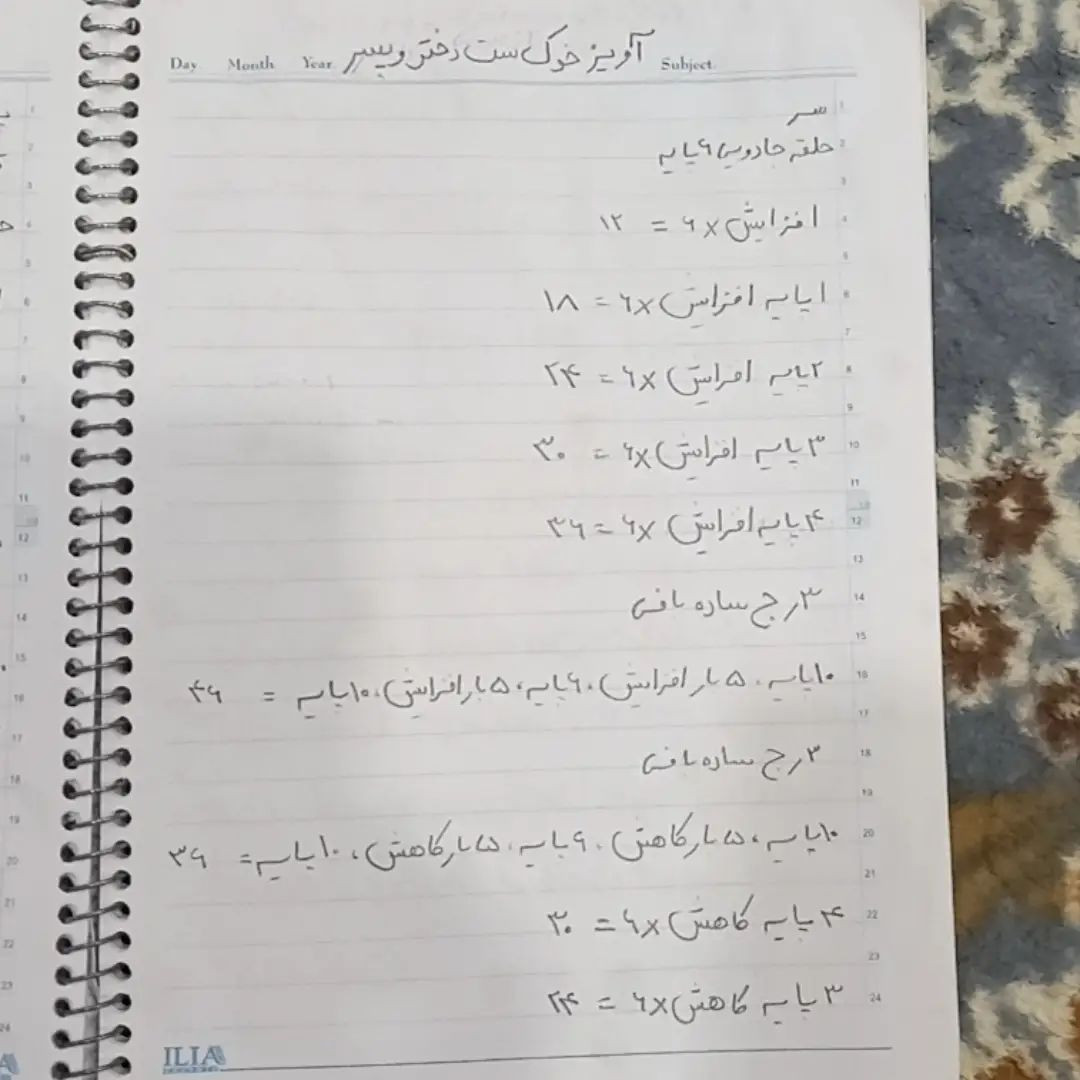 Day Month Year آویز خوک ست دختر و پسر Subject
سر
حلقه جادویی ۶ پایه
افزایش x ۶ = ۱۲
۱ پایه افزایش x ۶ = ۱۸
۲ پایه افزایش x ۶ = ۲۴
۳ پایه افزایش x ۶ = ۳۰
۴ پایه افزایش x ۶ = ۳۶
۳ رج ساده بافی
۱۰ پایه، ۵ بار افزایش، ۶ پایه، ۵ بار افزایش، ۱۰ پایه = ۴۶
۳ رج ساده بافی
۱۰ پایه، ۵ بار کاهش، ۶ پایه، ۵ بار کاهش، ۱۰ پایه = ۳۶
۴ پایه کاهش x ۶ = ۳۰
۳ پایه کاهش x ۶ = ۲۴
ILIA